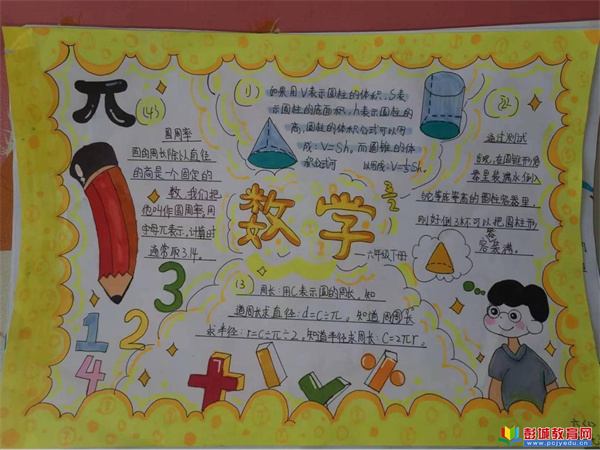 π
(4)
圆周率
圆的周长除以直径
的商是一个固定的
数,我们把
他叫作圆周率,用
字母π表示,计算时
通常取3.14。
(1) 如果用V表示圆柱的体积,S表
示圆柱的底面积,h表示圆柱的
高,圆柱的体积公式可以写
成:V=Sh。而圆锥的体
积公式可以用成:V=Sh。
(2)
通过测试
发现,在圆锥形容
器里装满水倒入
等底等高的圆柱容器里,
刚好倒3杯可以把圆柱形
容器
装满。
数学
六年级下册
(3) 周长:用C表示圆的周长,知
道周长求直径:d=C÷π。知道周长
求半径:r=C÷π÷2,知道半径求周长:C=2πr。
3
1 2
4
+ - × ÷
彭城教育网
www.pcjyedu.cn